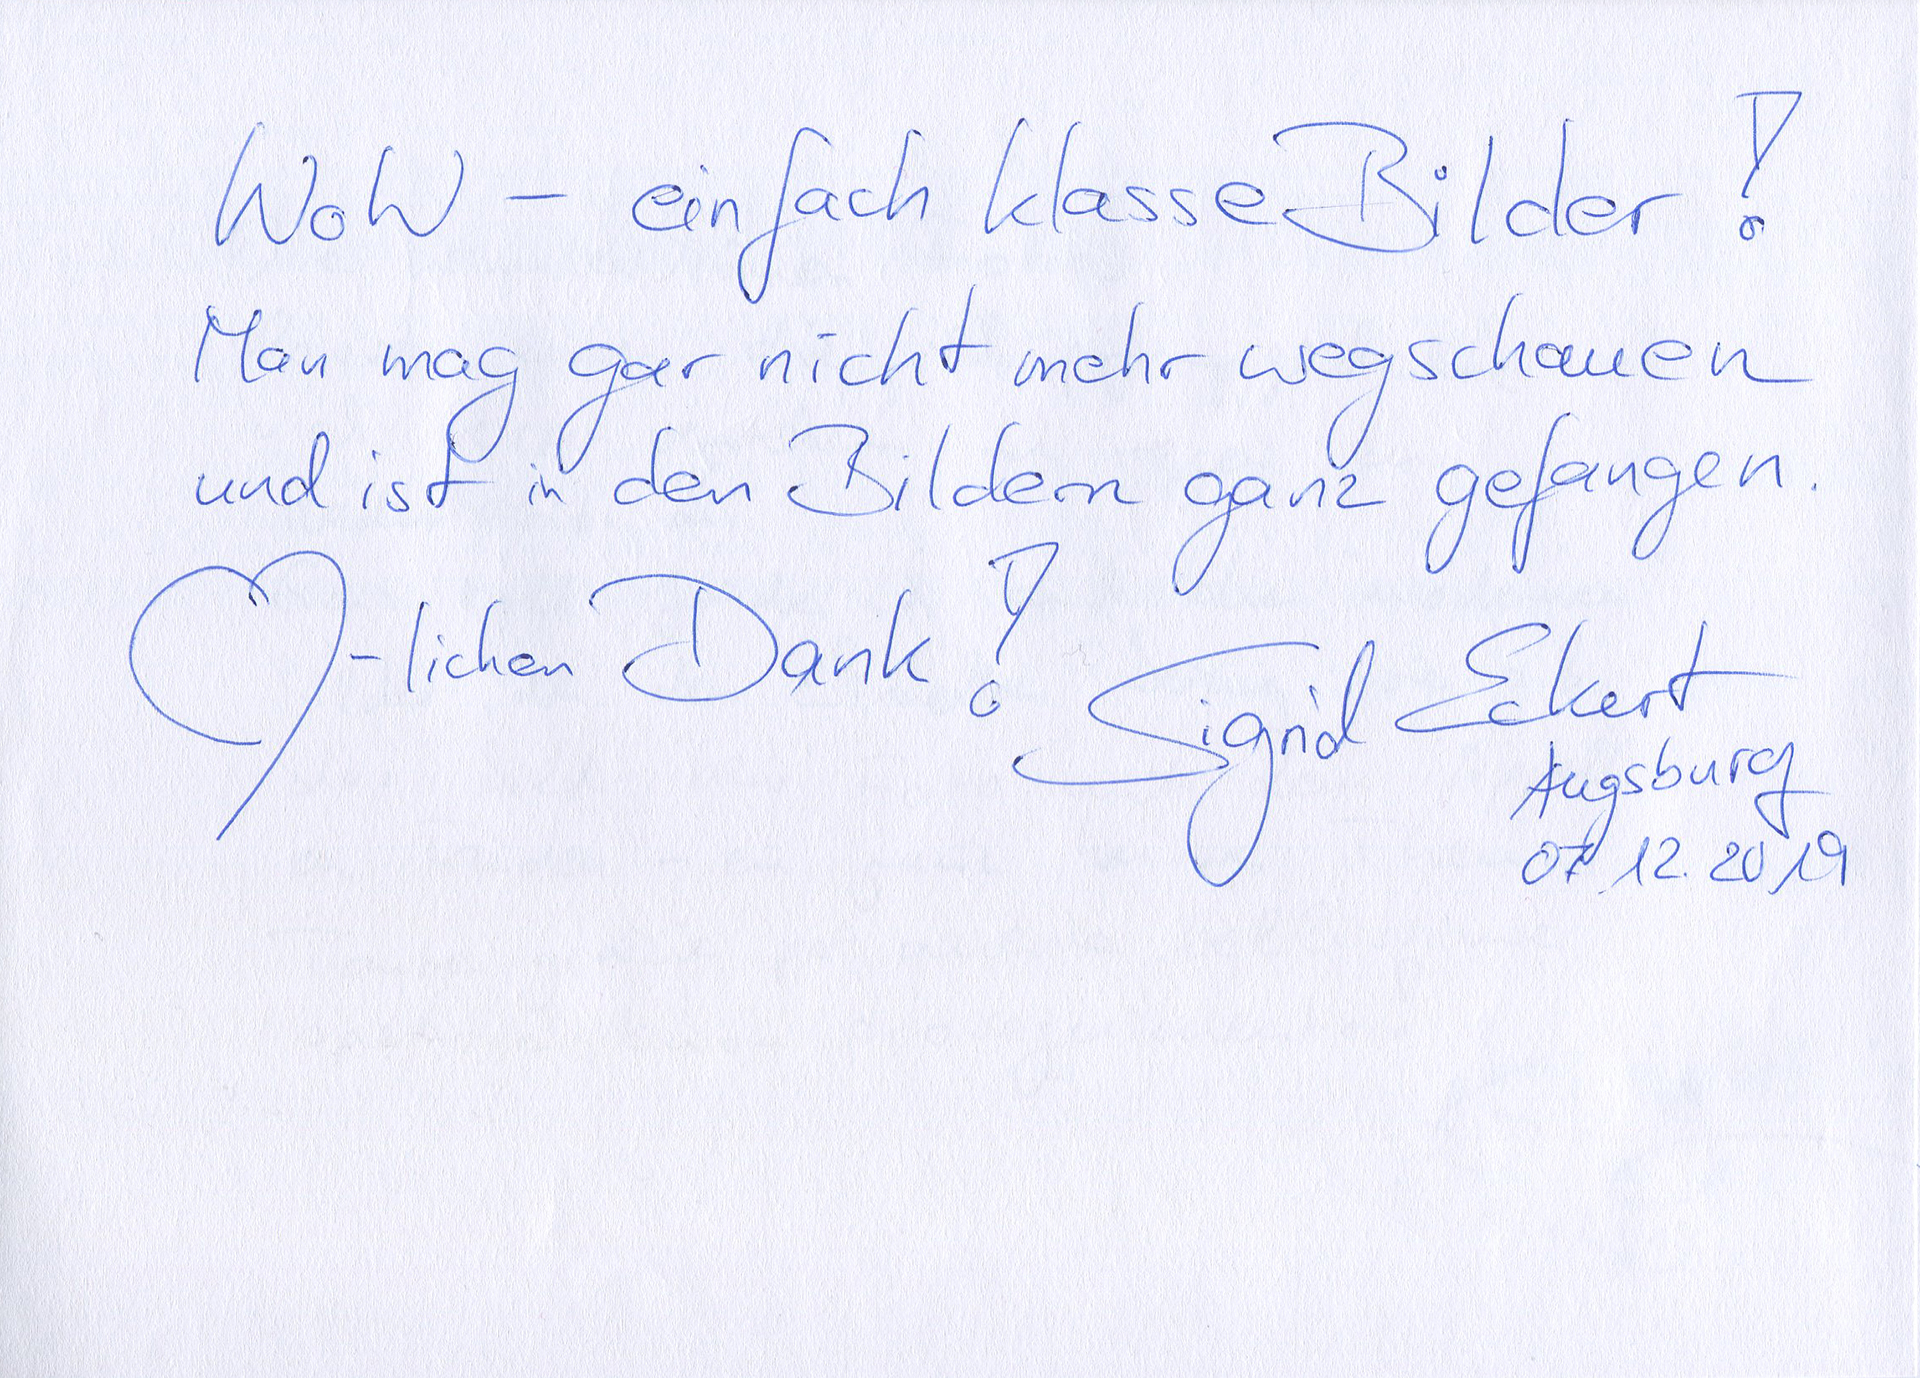 WoW – einfach klasse Bilder!
Man mag gar nicht mehr wegschauen
und ist in den Bildern ganz gefangen.
♡-lichen Dank! Sigrid Eckert
Augsburg
07.12.2019